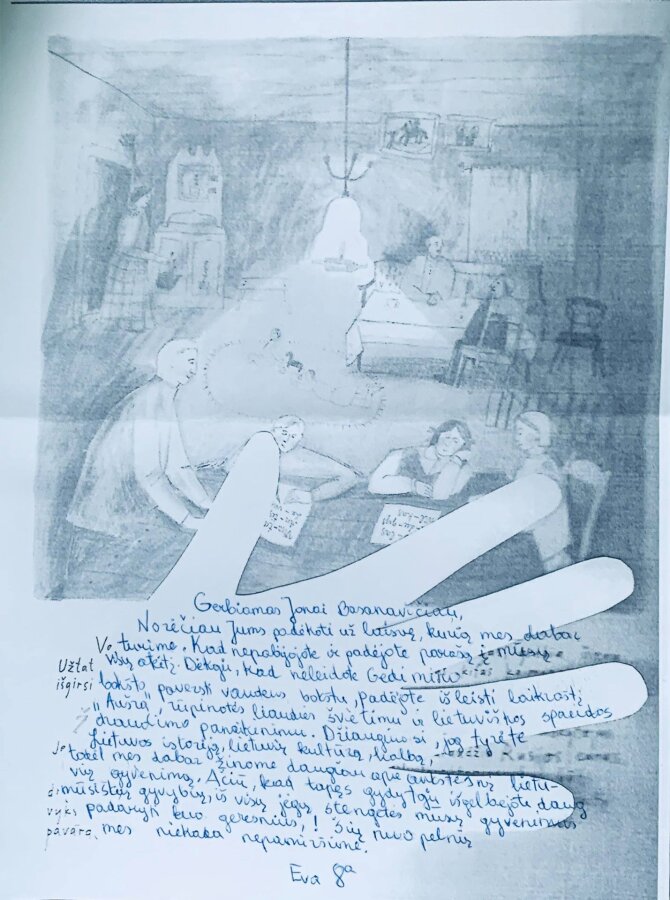 Gerbiamas Jonai Basanavičiau,
Norėčiau Jums padėkoti už laisvę, kurią mes dabar
turime. Kad nepabijojote ir padėjote parašą į mūsų
visų ateitį. Dėkoju, kad neleidote Gedimino
bokšto paversti vandens bokštu, padėjote išleisti laikraštį
„Aušra", rūpinotės liaudies švietimu ir lietuviškos spaudos
draudimo panaikinimu. Džiaugiuosi, jog tyrėte
Lietuvos istoriją, lietuvių kultūrą, kalbą,
todėl mes dabar žinome daugiau apie ankstesnį lietu-
vių gyvenimą. Ačiū, kad tapęs gydytoju išgelbėjote daug
mūsiškių gyvybių, iš visų jėgų stengėtės mūsų gyvenimus
padaryti kuo geresnius,! Šių nuopelnų
mes niekada nepamiršime.
Eva 8a
Užtat
išgirsi
vyks
pavaro